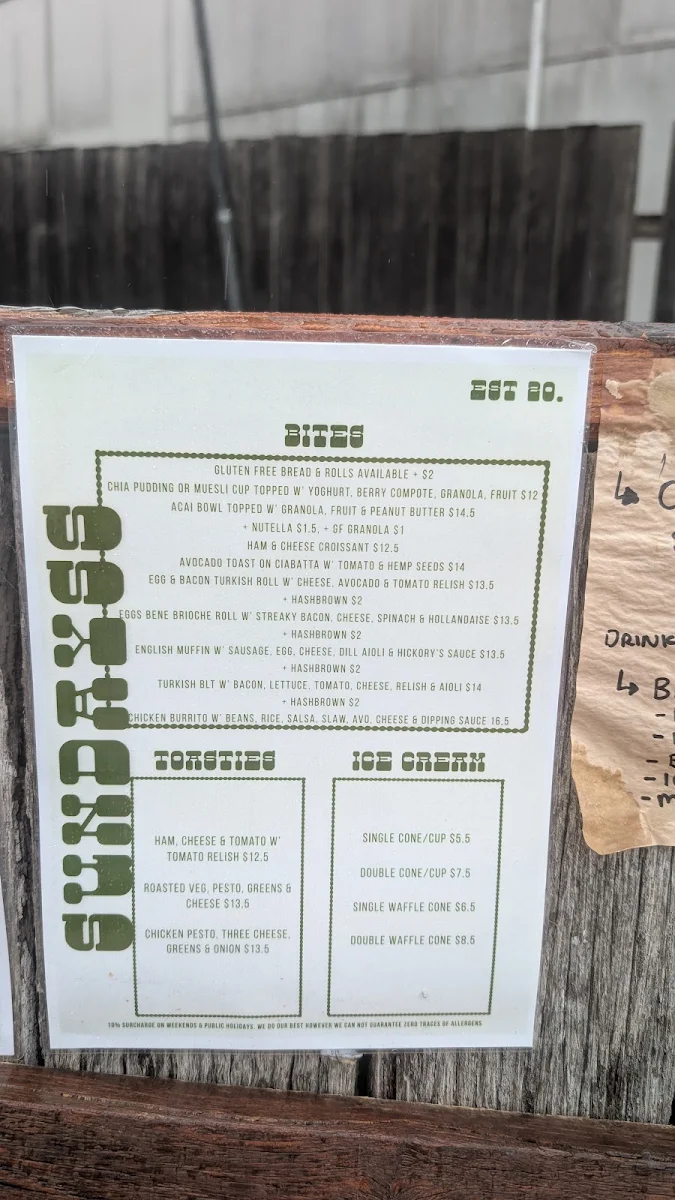 EST 20.
BITES
GLUTEN FREE BREAD & ROLLS AVAILABLE + $2
CHIA PUDDING OR MUESLI CUP TOPPED W' YOGHURT, BERRY COMPOTE, GRANOLA, FRUIT $12
ACAI BOWL TOPPED W' GRANOLA, FRUIT & PEANUT BUTTER $14.5
+ NUTELLA $1.5, + GF GRANOLA $1
HAM & CHEESE CROISSANT $12.5
AVOCADO TOAST ON CIABATTA W' TOMATO & HEMP SEEDS $14
EGG & BACON TURKISH ROLL W' CHEESE, AVOCADO & TOMATO RELISH $13.5
+ HASHBROWN $2
EGGS BENE BRIOCHE ROLL W' STREAKY BACON, CHEESE, SPINACH & HOLLANDAISE $13.5
+ HASHBROWN $2
ENGLISH MUFFIN W' SAUSAGE, EGG, CHEESE, DILL AIOLI & HICKORY'S SAUCE $13.5
+ HASHBROWN $2
TURKISH BLT W' BACON, LETTUCE, TOMATO, CHEESE, RELISH & AIOLI $14
+ HASHBROWN $2
CHICKEN BURRITO W' BEANS, RICE, SALSA, SLAW, AVO, CHEESE & DIPPING SAUCE 16.5
SUNDAYSS
TOASTIES
HAM, CHEESE & TOMATO W'
TOMATO RELISH $12.5
ROASTED VEG, PESTO, GREENS &
CHEESE $13.5
CHICKEN PESTO, THREE CHEESE,
GREENS & ONION $13.5
ICE CREAM
SINGLE CONE/CUP $5.5
DOUBLE CONE/CUP $7.5
SINGLE WAFFLE CONE $6.5
DOUBLE WAFFLE CONE $8.5
10% SURCHARGE ON WEEKENDS & PUBLIC HOLIDAYS. WE DO OUR BEST HOWEVER WE CAN NOT GUARANTEE ZERO TRACES OF ALLERGENS
DRINK